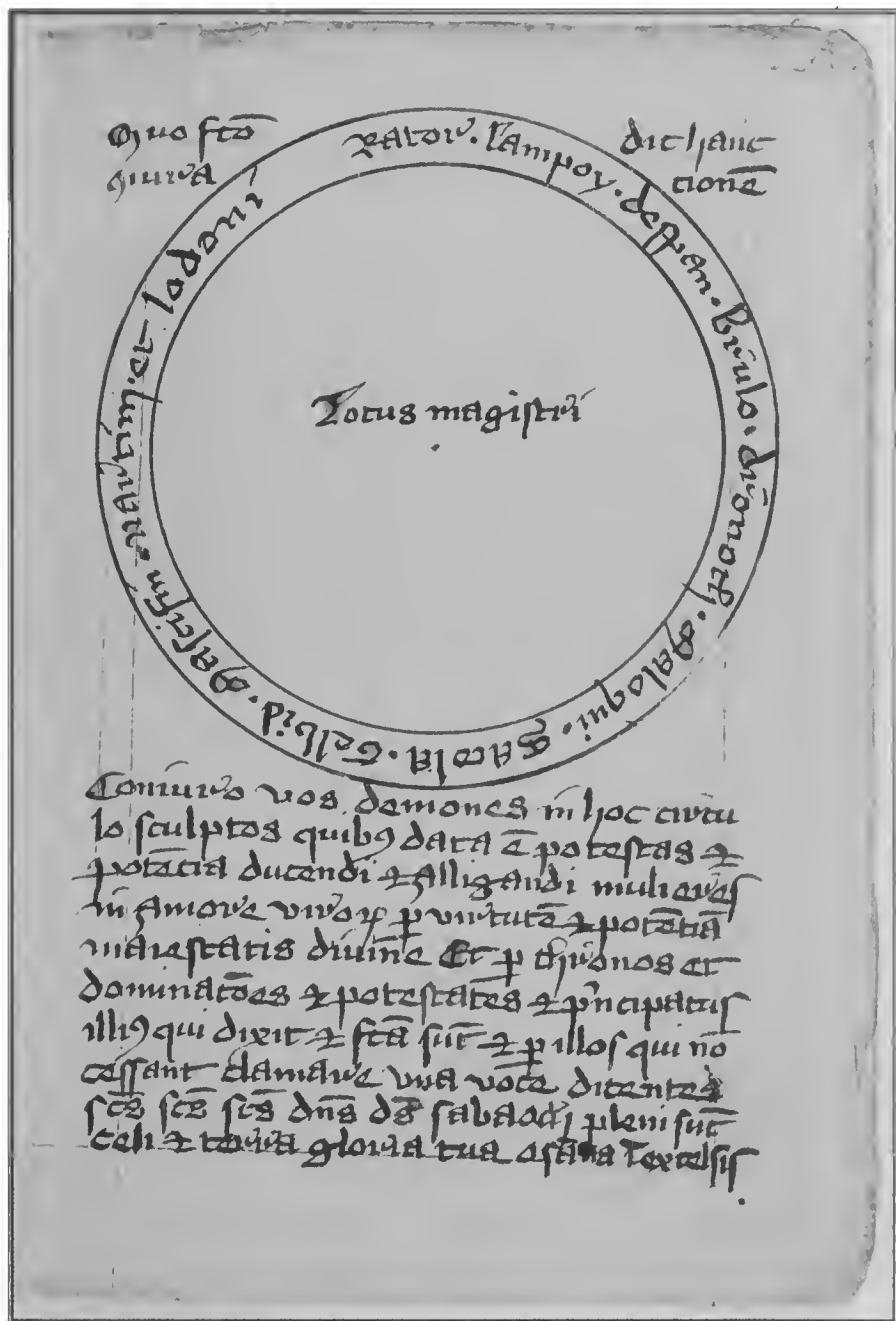 Quo fcō dic hanc
ꝯiura cionē
Rator · lampoy · despan · brulo · dronoth · Maloqui · Satola · Gelbid · Mascifin · nartim · et lodoni
Locus magistri
Coniuro vos demones in hoc circu
lo sculptos quibꝰ data ē potestas ⁊
potēcia ducendi ⁊ alligandi mulieres
in amore viroꝝ ꝑ virtutē ⁊ potētiā
maiestatis diuine Et ꝑ thronos et
dominacōes ⁊ potestates ⁊ pͥncipatus
illiꝰ qui dixit ⁊ fcā sūt ⁊ ꝑ illos qui nō
cessant clamare vna voce dicentes
scs̄ scs̄ scs̄ dns̄ ds̄ sabaoth pleni sūt
celi ⁊ terra gloria tua osāna ī excelsis